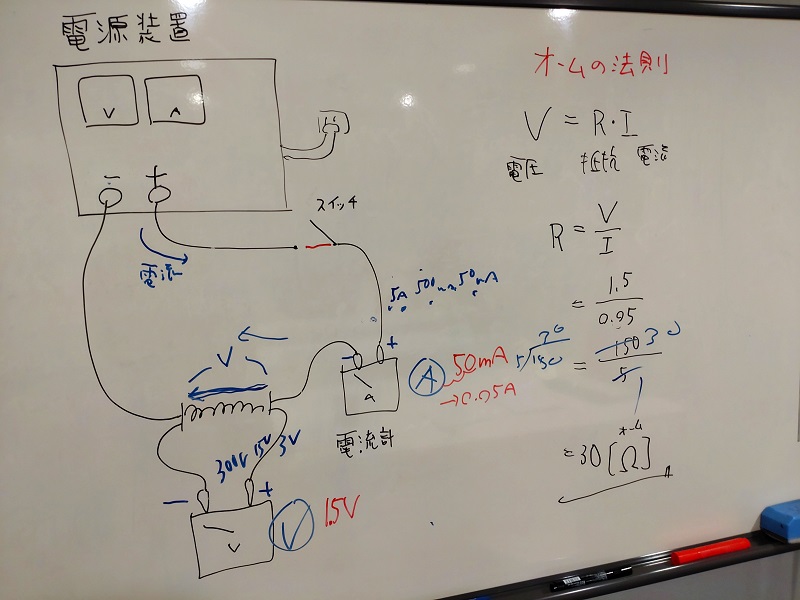 電源装置
V A
− +
電流
スイッチ
5A 500mA 50mA
V
− +
A
電流計
A 50mA
→0.05A
300V 15V 3V
− +
V
V 1.5V
オームの法則
V = R・I
電圧 抵抗 電流
R = V/I
= 1.5/0.05
30
5/150
= 150/5 30
オーム
= 30 [Ω]